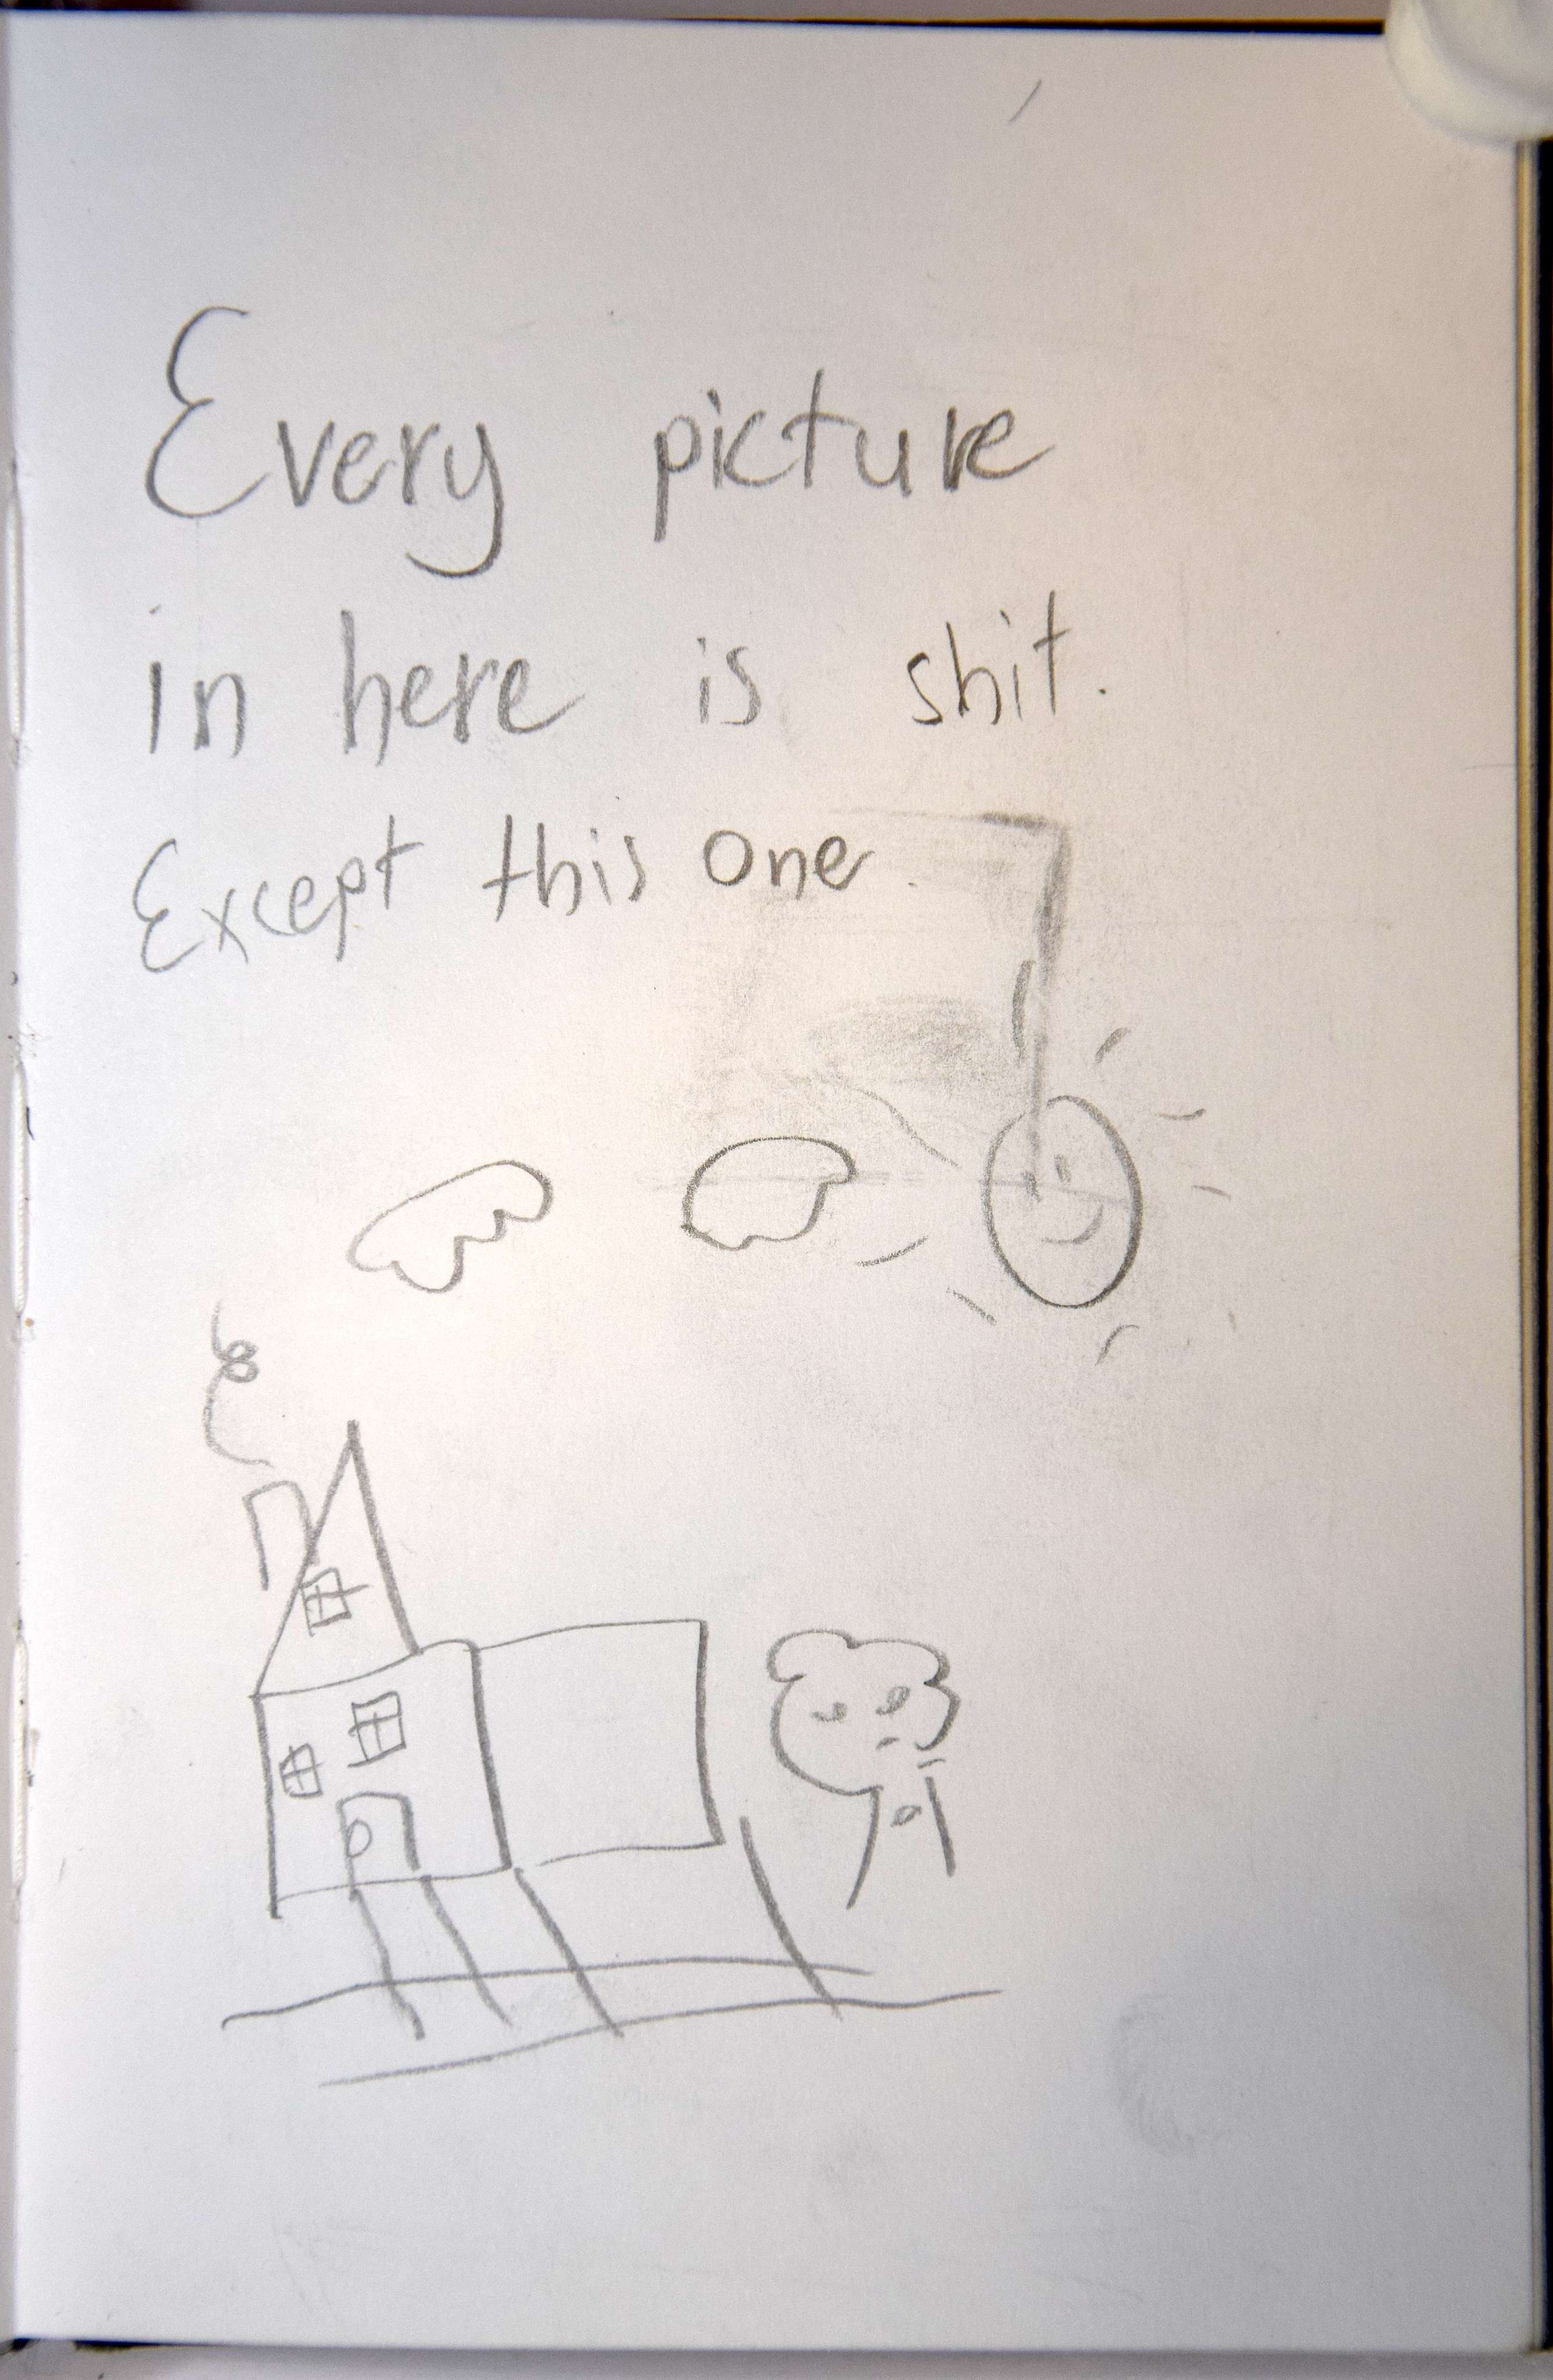 Every picture
in here is shit.
Except this one.